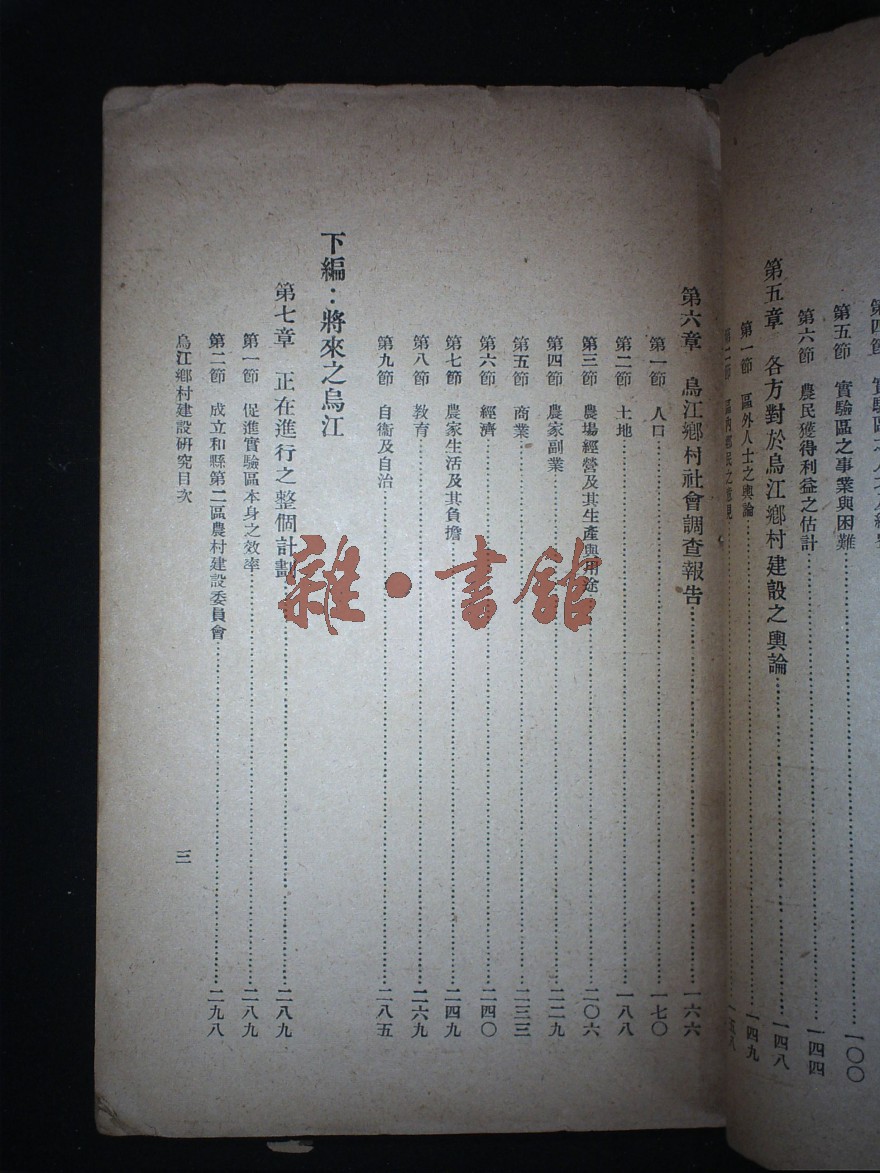 第五節　實驗區之事業與困難……一〇〇
第六節　農民獲得利益之估計……一四四
第五章　各方對於烏江鄉村建設之輿論……一四八
第一節　區外人士之輿論……一四九
第二節　區內鄉民之意見……一五八
第六章　烏江鄉村社會調查報告……一六六
第一節　人口……一七〇
第二節　土地……一八八
第三節　農場經營及其生產與用途……二〇六
第四節　農家副業……二二九
第五節　商業……二三三
第六節　經濟……二四〇
第七節　農家生活及其負擔……二四九
第八節　教育……二六九
第九節　自衞及自治……二八五
下編：將來之烏江
第七章　正在進行之整個計劃……二八九
第一節　促進實驗區本身之效率……二八九
第二節　成立和縣第二區農村建設委員會……二九八
烏江鄉村建設研究目次
三
雜·書館